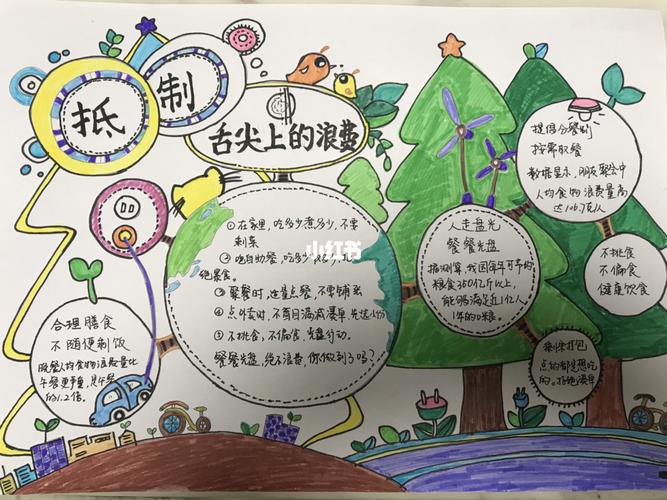 抵制
舌尖上的浪费
①在家里,吃多少煮多少,不要
剩菜
②吃自助餐,吃多少
绝暴食。
③聚餐时,适量点餐,不要铺张
④点外卖时,不盲目满减凑单
⑤不挑食,不偏食,光盘行动。
餐餐光盘,绝不浪费,你做到了吗?
小红书
合理膳食
不随便剩饭
晚餐人均食物浪费量比
午餐更严重,是午餐
的1.2倍。
人走盘光
餐餐光盘
据测算,我国每年可节约
粮食350亿斤以上,
能够满足近1亿人
1年的口粮。
提倡分餐制
按需取餐
数据显示,朋友聚会中
人均食物浪费量高
达106.7克/人
不挑食
不偏食
健康饮食
剩余打包
点的都是想吃
的。拒绝凑单